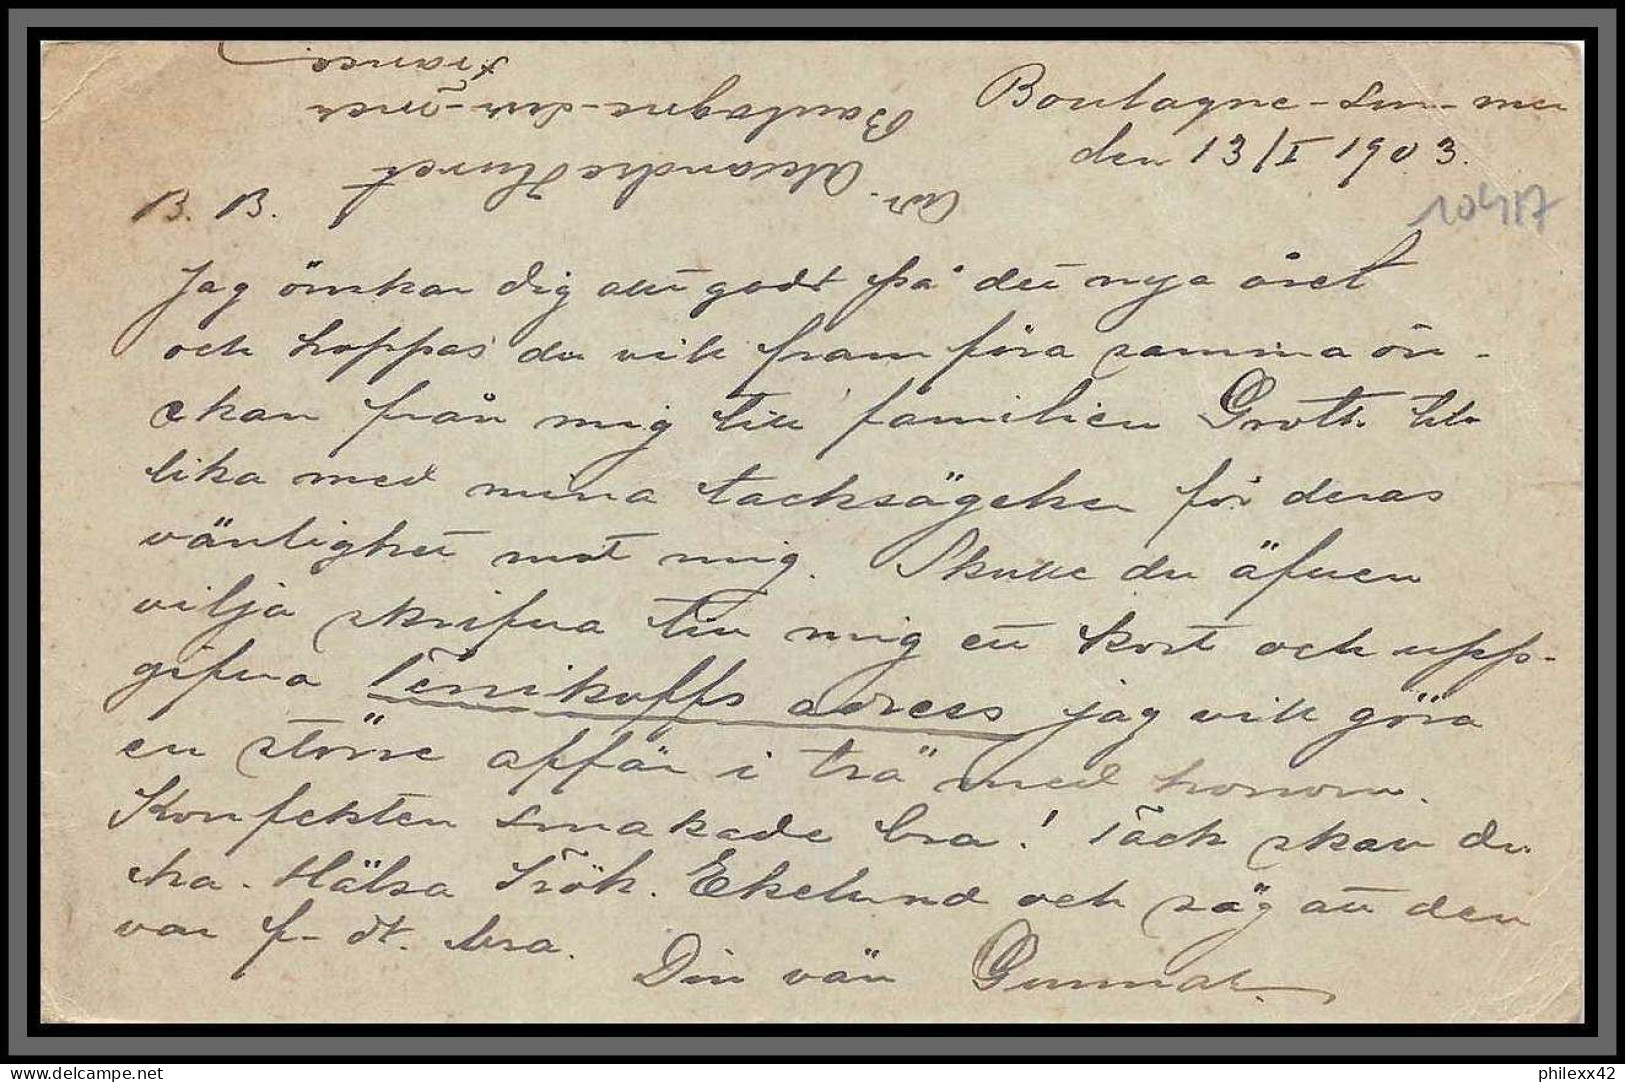 Boulogne-sur-mer
den 13/I 1903.
Adr. Alexandre Huret
Boulogne-sur-mer
France
10417
B. B.
Jag önskar dig allt godt på det nya året
och hoppas du vill framföra samma ön-
skan från mig till familjen Groth. till
lika med mina tacksägelser för deras
vänlighet mot mig. Skulle du äfven
vilja skrifva till mig ett kort och upp-
gifva adress jag vill göra
en större affär i trä med honom.
Konfekten smakade bra! Tack skall du
ha. Hälsa Frök. Ekelund och säg att den
var f-dt. bra.
Din vän Gunnar.
philexx42